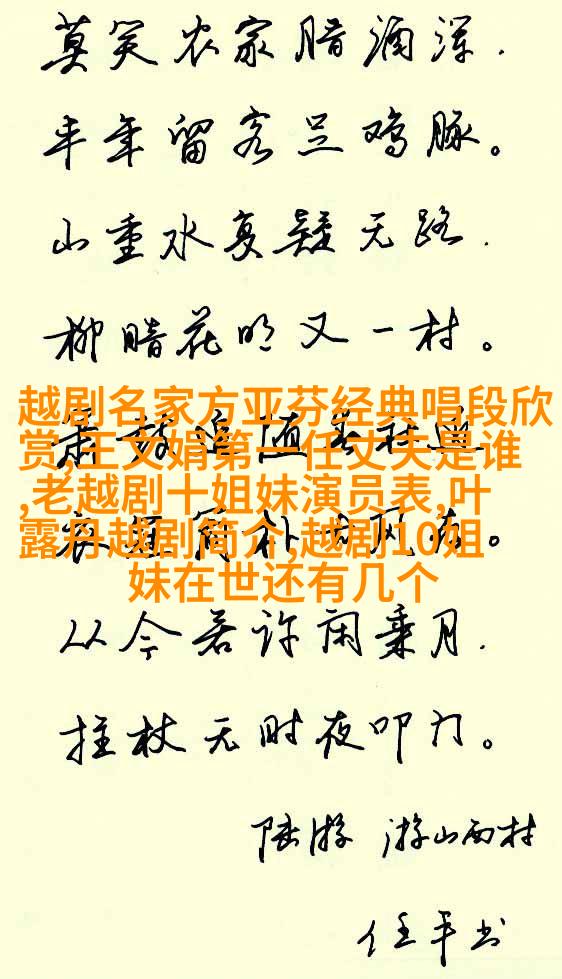 莫笑农家腊酒浑.
丰年留客足鸡豚。
山重水复疑无路.
柳暗花明又一村。
越剧名家方亚芬经典唱段欣
赏,王文娟第一任丈夫是谁
,老越剧十姐妹演员表,叶
露丹越剧简介,越剧10姐
妹在世还有几个
从今若许闲乘月.
拄杖无时夜叩门。
陆游 游山西村
任平书